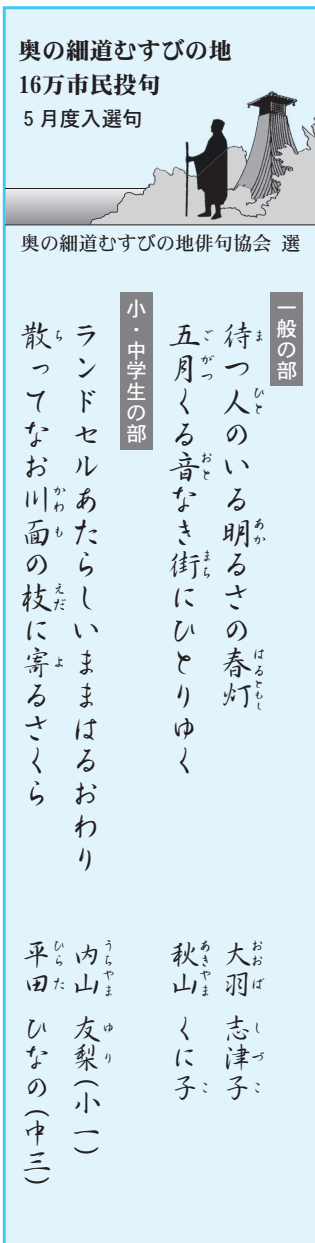 奥の細道むすびの地
16万市民投句
5月度入選句
奥の細道むすびの地俳句協会 選
一般の部
待つ人のいる明るさの春灯 大羽 志津子
五月くる音なき街にひとりゆく 秋山 くに子
小・中学生の部
ランドセルあたらしいままはるおわり 内山 友梨(小一)
散ってなお川面の枝に寄るさくら 平田 ひなの(中三)